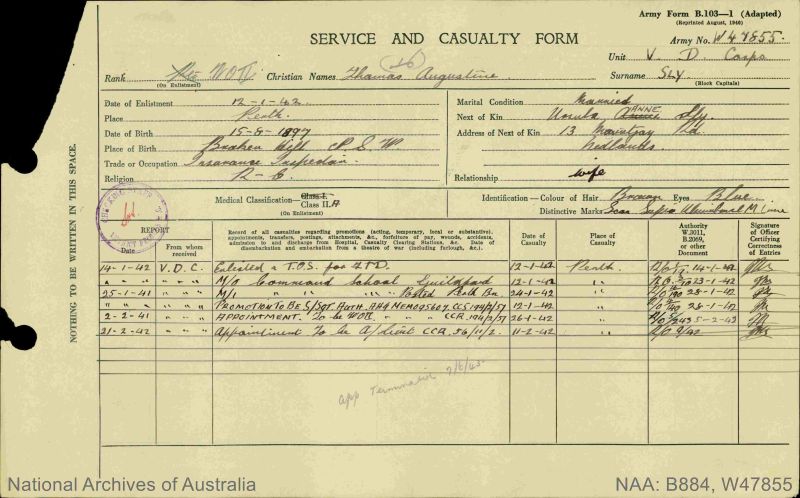 Army Form B.103—1 (Adapted)
(Reprinted August, 1940)
SERVICE AND CASUALTY FORM
Army No. W47855
Unit V. D. Corps
Rank Pte WOII Christian Names Thomas Augustine
Surname SLY
(On Enlistment) (Block Capitals)
Date of Enlistment 12-1-42
Place Perth
Date of Birth 15-8-1897
Place of Birth Broken Hill N.S.W
Trade or Occupation Insurance Inspector
Religion R-C
Marital Condition Married
Next of Kin Ursula ANNE Sly
Address of Next of Kin 13 Mountjoy Rd
Nedlands
Relationship wife
Medical Classification Class I. Class II.A
(On Enlistment)
Identification—Colour of Hair Brown Eyes Blue
Distinctive Marks Scar Supra Umbilical M. Line
NOTHING TO BE WRITTEN IN THIS SPACE.
REPORT
Date
From whom received
Record of all casualties regarding promotions (acting, temporary, local or substantive), appointments, transfers, postings, attachments, &c., forfeiture of pay, wounds, accidents, admission to and discharge from Hospital, Casualty Clearing Stations, &c. Date of disembarkation and embarkation from a theatre of war (including furlough, &c.).
Date of Casualty
Place of Casualty
Authority W.3011, B.2069, or other Document
Signature of Officer Certifying Correctness of Entries
14-1-42 V.D.C. Enlisted & T.O.S. for FTD. 12-1-42 Perth 14-1-42
" " " " M/O Command School Guildford 12-1-42 " 23-1-42
25-1-41 " " " M/I " " Posted Perth Bn. 24-1-42 " 28-1-42
" " " " " PROMOTION TO BE S/SGT. AUTH. AHQ MEMO 95607 12-1-42 " 28-1-42
2-2-41 " " " APPOINTMENT. To be WOII " " CCR 194/2/51 26-1-42 " 5-2-42
21-2-42 " " " Appointment to be A/Lieut CCR. 56/11/2. 11-2-42 9/42
App Terminated 7/6/43
National Archives of Australia
NAA: B884, W47855